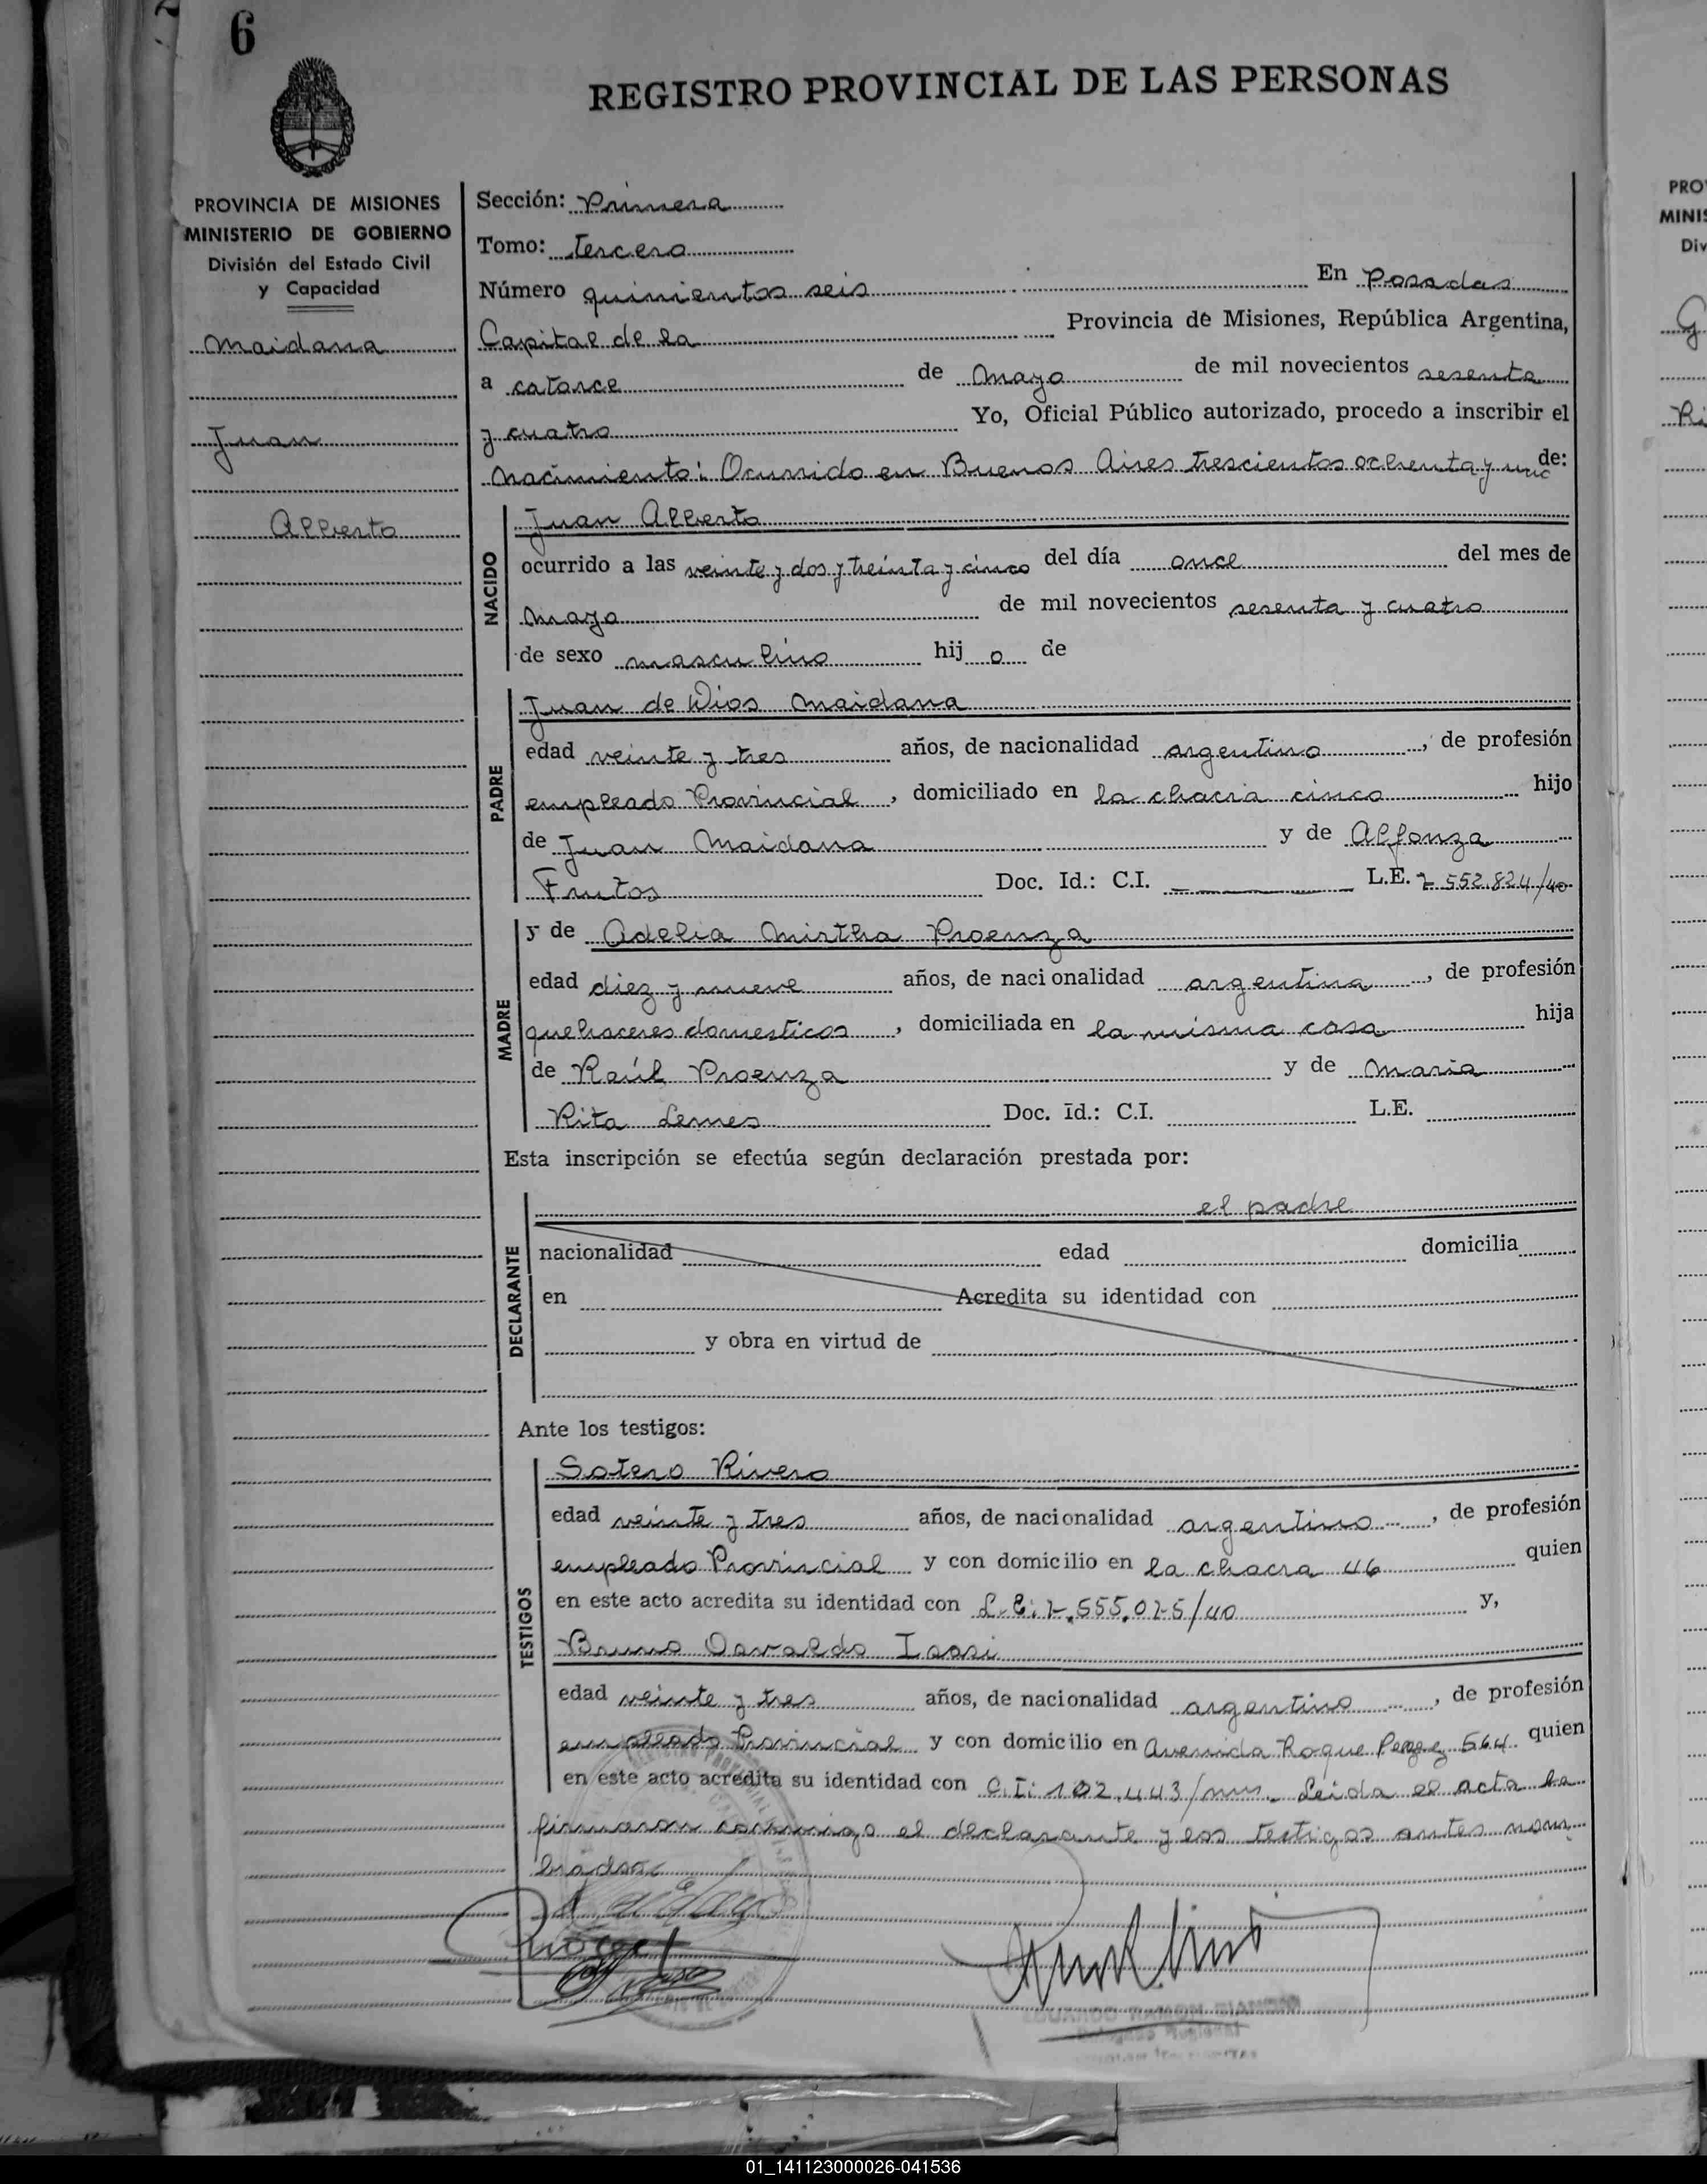 6
REGISTRO PROVINCIAL DE LAS PERSONAS
PROVINCIA DE MISIONES
MINISTERIO DE GOBIERNO
División del Estado Civil
y Capacidad
Maidana
Juan
Alberto
Sección: Primera
Tomo: tercero
Número quinientos seis En Posadas
Capital de la Provincia de Misiones, República Argentina,
a catorce de Mayo de mil novecientos sesenta
y cuatro Yo, Oficial Público autorizado, procedo a inscribir el
Nacimiento: Ocurrido en Buenos Aires trescientos ochenta y uno de:
NACIDO
Juan Alberto
ocurrido a las veinte y dos y treinta y cinco del día once del mes de
Mayo de mil novecientos sesenta y cuatro
de sexo masculino hij o de
PADRE
Juan de Dios Maidana
edad veinte y tres años, de nacionalidad argentino, de profesión
empleado Provincial, domiciliado en la chacra cinco hijo
de Juan Maidana y de Alfonza
Frutos Doc. Id.: C.I. — L.E. 7.552.824/40
MADRE
y de Adelia Mirtha Proenza
edad diez y nueve años, de nacionalidad argentina, de profesión
quehaceres domesticos, domiciliada en la misma casa hija
de Raúl Proenza y de Maria
Rita Lemes Doc. Id.: C.I. L.E.
Esta inscripción se efectúa según declaración prestada por:
DECLARANTE
el padre
nacionalidad edad domicilia
en Acredita su identidad con
y obra en virtud de
Ante los testigos:
TESTIGOS
Sotero Rivero
edad veinte y tres años, de nacionalidad argentino, de profesión
empleado Provincial y con domicilio en la chacra 46 quien
en este acto acredita su identidad con L.E: 7.555.025/40 y,
Bruno Osvaldo
edad veinte y tres años, de nacionalidad argentino, de profesión
empleado Provincial y con domicilio en Avenida Roque Perez 564 quien
en este acto acredita su identidad con C.I: 102.443/mnes. Leida el acta la
firmaron conmigo el declarante y los testigos antes nom-
brados
PRO
MINIS
Div
01_141123000026-041536